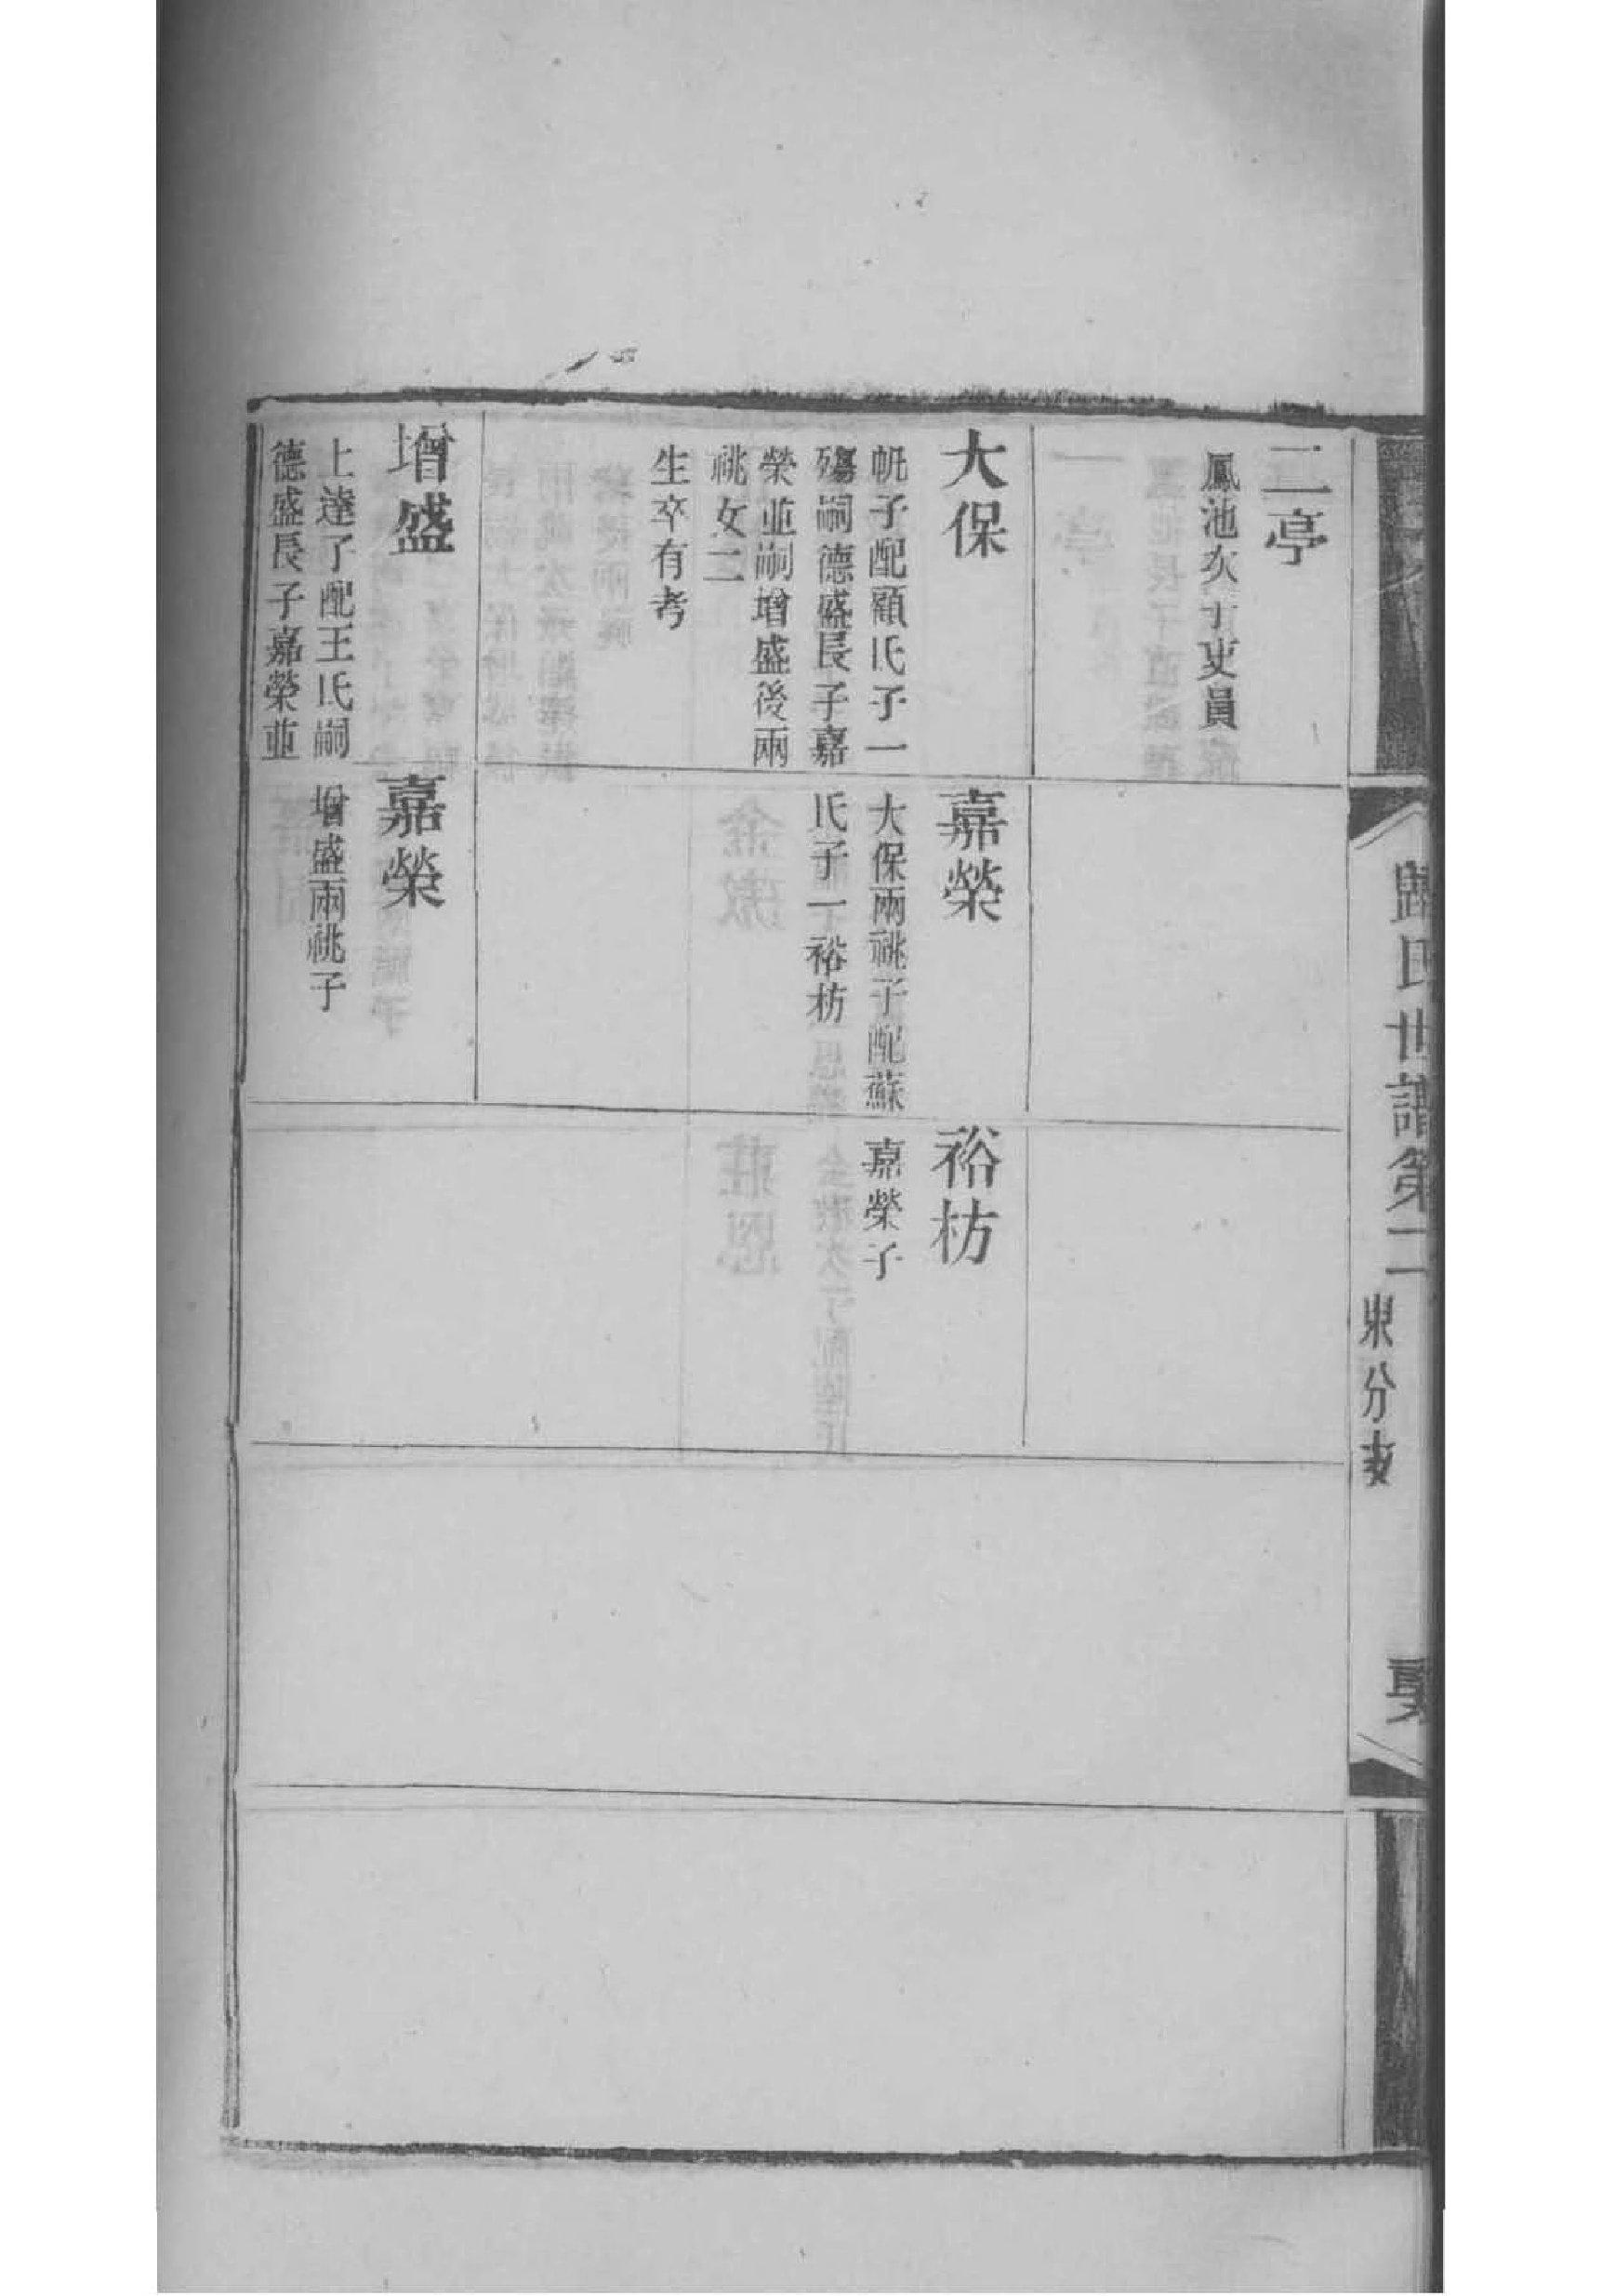 歸氏世譜第二
東分支
二亭
鳳池次子吏員
大保
子配顧氏子一
殤嗣德盛長子嘉
榮並嗣增盛後兩
祧女二
生卒有考
嘉榮
大保兩祧子配蘇
氏子一裕枋
裕枋
嘉榮子
增盛
上達子配王氏嗣
德盛長子嘉榮並
嘉榮
增盛兩祧子